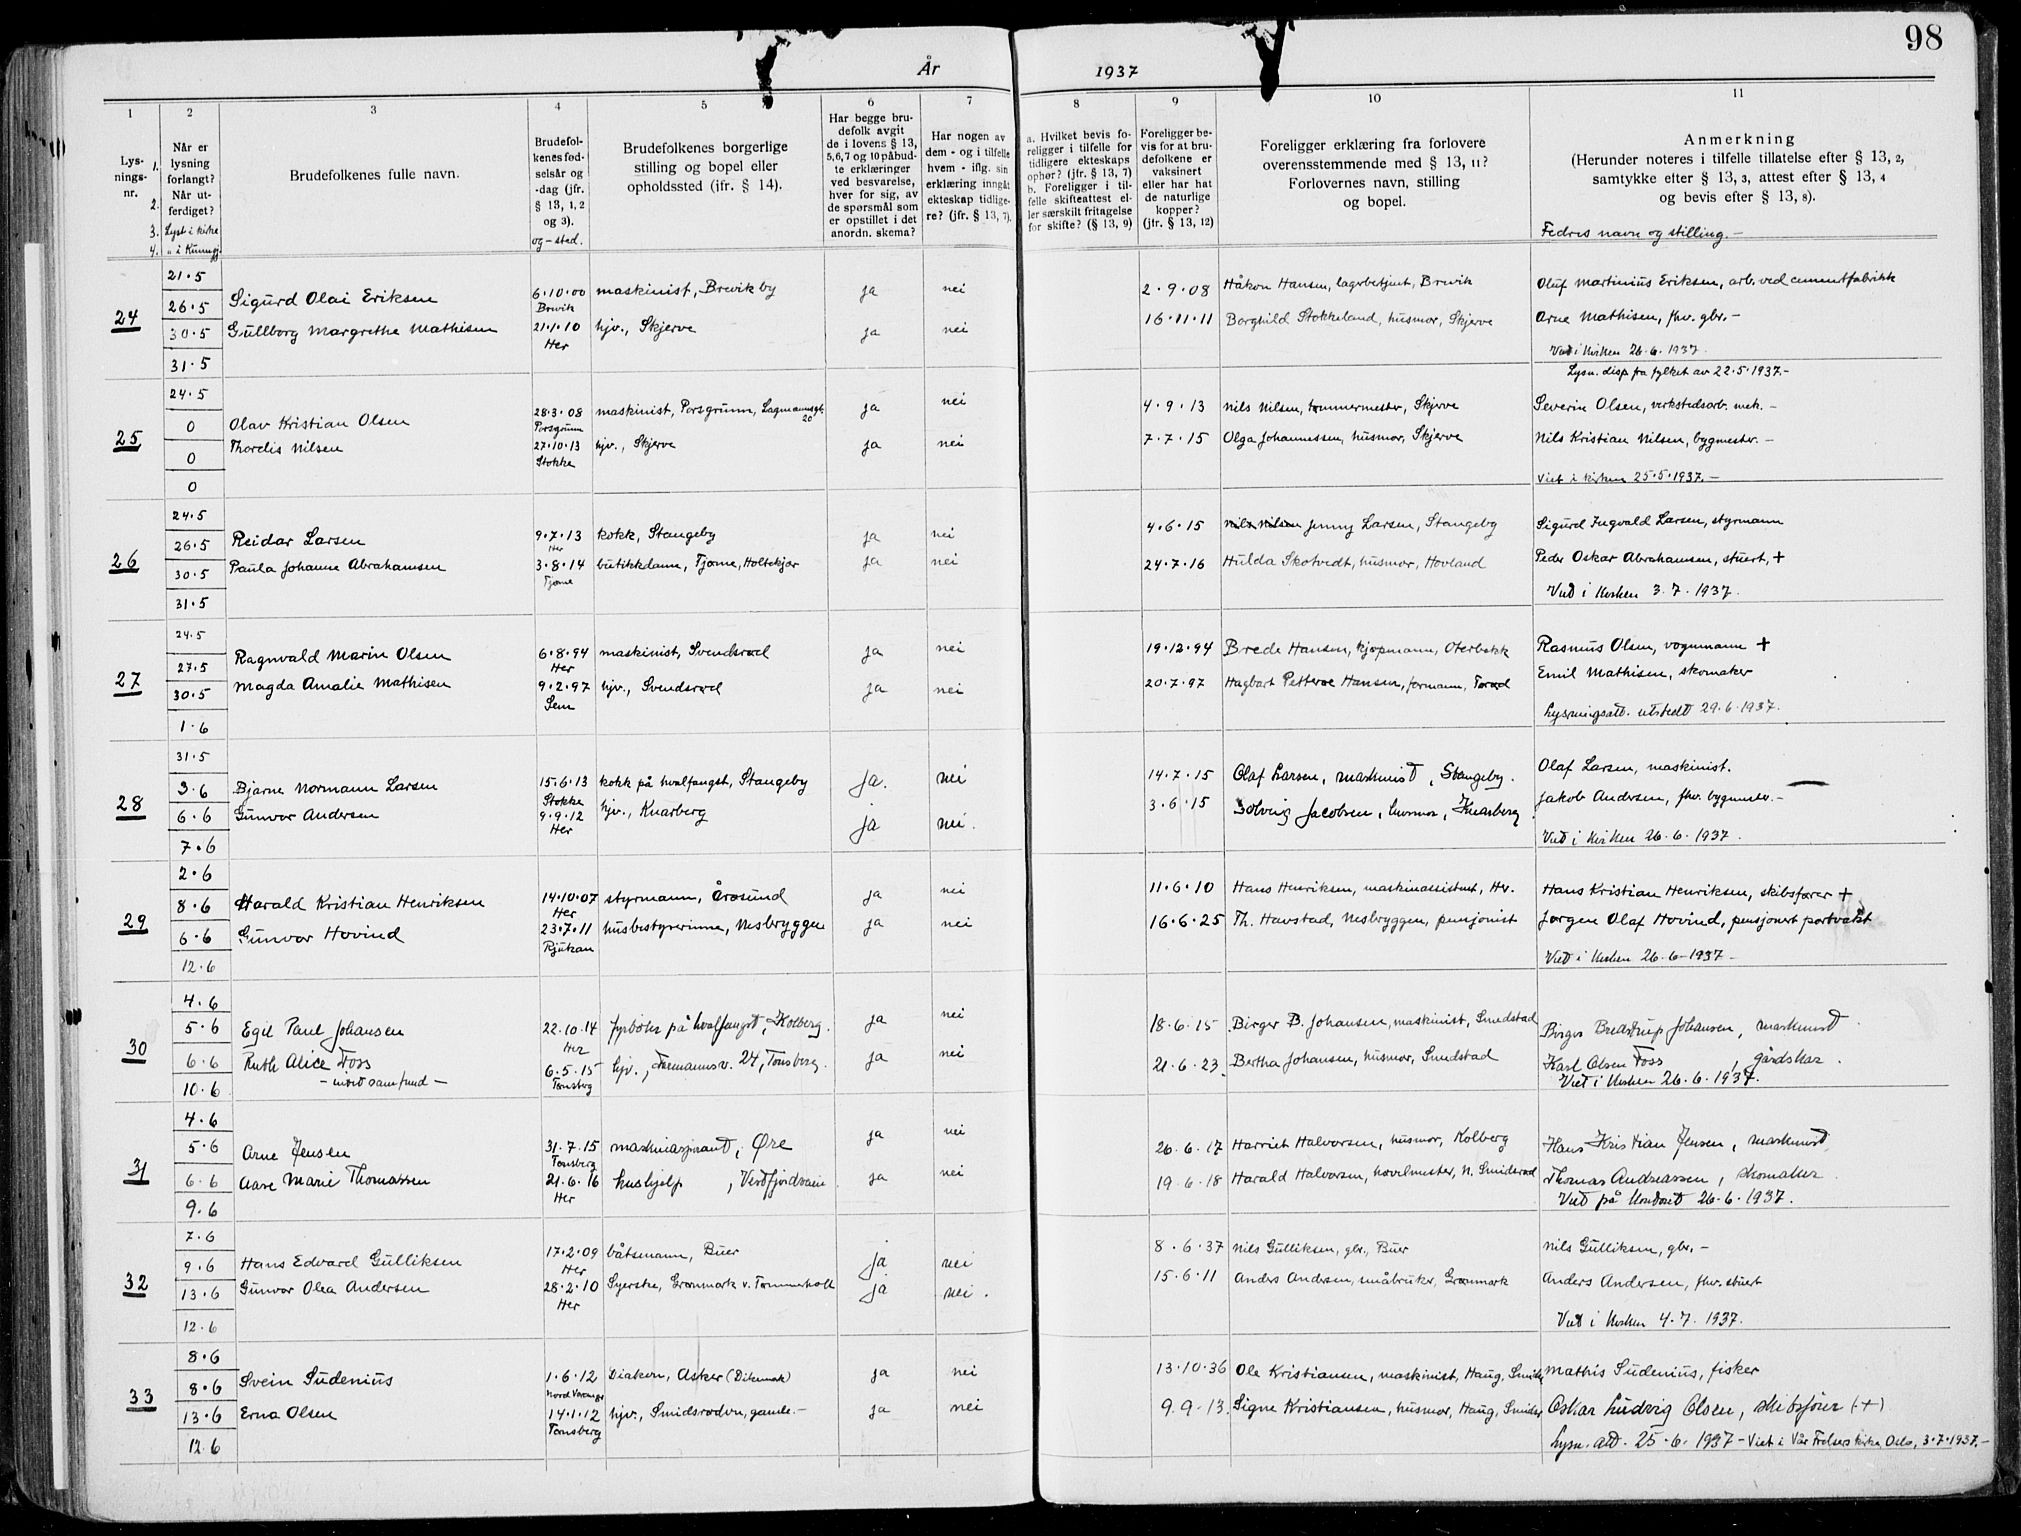 98
År 1937
1 2 3 4 5 6 7 8 9 10 11
Lys-
nings-
nr.
1.
2.
3.
4.
Når er
lysning
forlangt?
Når ut-
ferdiget?
Lyst i kirke
" i Kunngj.
Brudefolkenes fulle navn.
Brudefol-
kenes fød-
selsår og
-dag (jfr.
§ 13, 1, 2
og 3).
og - sted.
Brudefolkenes borgerlige
stilling og bopel eller
opholdssted (jfr. § 14).
Har begge bru-
defolk avgit
de i lovens § 13,
5, 6, 7 og 10 påbud-
te erklæringer
ved besvarelse,
hver for sig, av
de spørsmål som
er opstillet i det
anordn. skema?
Har nogen av
dem - og i tilfelle
hvem - iflg. sin
erklæring inngått
ekteskap tidlige-
re? (jfr. § 13, 7).
a. Hvilket bevis fo-
religger i tilfelle for
tidligere ekteskaps
ophør? (jfr. § 13, 7)
b. Foreligger i til-
felle skifteattest el-
ler særskilt fritagelse
for skifte? (§ 13, 9)
Foreligger be-
vis for at bru-
defolkene er
vaksinert
eller har hat
de naturlige
kopper?
(jfr. § 13, 12)
Foreligger erklæring fra forlovere
overensstemmende med § 13, 11?
Forlovernes navn, stilling
og bopel.
Anmerkning
(Herunder noteres i tilfelle tillatelse efter § 13, 2,
samtykke efter § 13, 3, attest efter § 13, 4
og bevis efter § 13, 8).
Fedres navn og stilling.-
24
21.5
26.5
30.5
31.5
Sigurd Olai Eriksen 6.10.00 Brevik maskinist, Brevik by ja nei 2.9.08 Håkon Hansen, lagerbetjent, Brevik Oluf Martinius Eriksen, arb. ved cementfabrikk
Gullborg Margrethe Mathisen 21.1.10 Her hjv., Skjerve ja nei 16.11.11 Borghild Stokkeland, husmor, Skjerve Arne Mathisen, fhv. gbr.-
Viet i kirken 26.6.1937.
25
24.5
0
0
0
Lysn. disp fra fylket av 22.5.1937.-
Olav Kristian Olsen 28.3.08 Porsgrunn maskinist, Porsgrunn, Lagmannsgt. 20 ja nei 4.9.13 Nils Nilsen, tømmermester, Skjerve Severin Olsen, verkstedsarb. mek.-
Thordis Nilsen 27.10.13 Stokke hjv., Skjerve ja nei 7.7.15 Olga Johannessen, husmor, Skjerve Nils Kristian Nilsen, bygmester.-
Viet i kirken 25.5.1937.-
26
24.5
26.5
30.5
31.5
Reidar Larsen 9.7.13 Her kokk, Stangeby ja nei 4.6.15 Nils Nilsen Jenny Larsen, Stangeby Sigurd Ingvald Larsen, styrmann
Paula Johanne Abrahamsen 3.8.14 Tjøme butikkdame, Tjøme, Holtekjær ja nei 24.7.16 Hulda Skotvedt, husmor, Hovland Peder Oskar Abrahamsen, stuert, +
Viet i kirken 3.7.1937.
27
24.5
27.5
30.5
1.6
Ragnvald Marin Olsen 6.8.94 Her maskinist, Svendsrød ja nei 19.12.94 Brede Hansen, kjøpmann, Oterbekk Rasmus Olsen, vognmann +
Magda Amalie Mathisen 9.2.97 Sem hjv., Svendsrød ja nei 20.7.97 Hagbart Petterøe Hansen, formann, Torød Emil Mathisen, skomaker
Lysningsatt. utstedt 29.6.1937.
28
31.5
3.6
6.6
7.6
Bjarne Normann Larsen 15.6.13 Stokke kokk på hvalfangst, Stangeby ja. nei 14.7.15 Olaf Larsen, maskinist, Stangeby. Olaf Larsen, maskinist.
Gunvor Andersen 9.9.12 Her hjv., Knarberg ja nei. 3.6.15 Solveig Jacobsen, husmor, Knarberg Jakob Andersen, fhv. bygmester.-
Viet i kirken 26.6.1937.
29
2.6
8.6
6.6
12.6
Harald Kristian Henriksen 14.10.07 Her styrmann, Årøsund ja nei 11.6.10 Hans Henriksen, maskinassistent, Hv. Hans Kristian Henriksen, skibsfører +
Gunvor Hovind 23.7.11 Rjukan husbestyrerinne, Nesbryggen ja nei 16.6.25 Th. Havstad, Nesbryggen, pensjonist Jørgen Olaf Hovind, pensjonert portvakt
Viet i kirken 26.6.1937-
30
4.6
5.6
6.6
10.6
Egil Paul Johansen 22.10.14 Her fyrbøter på hvalfangst, Kolberg. ja nei 18.6.15 Birger B. Johansen, maskinist, Smidstad Birger Bredstrup Johansen, maskinist
Ruth Alice Foss 6.5.15 Tønsberg hjv., Farmannsv. 24, Tønsberg. ja nei 21.6.23. Bertha Johansen, husmor, Smidstad Karl Olsen Foss, gårdskar.
Viet i kirken 26.6.1937.
31
4.6
5.6
6.6
9.6
Arne Jensen 31.7.15 Tønsberg maskinaspirant, Øre ja nei 26.6.17 Harriet Halvorsen, husmor, Kolberg Hans Kristian Jensen, maskinist
Aase Marie Thomassen 21.6.16 Her hushjelp, Vestfjordveien ja nei 19.6.18 Harald Halvorsen, hovelmester, N. Smidsrød Thomas Andreassen, skomaker
Viet på kontoret 26.6.1937.
32
7.6
9.6
13.6
12.6
Hans Edvard Gulliksen 17.2.09 Her båtsmann, Buer ja nei 8.6.37 Nils Gulliksen, gbr., Buer Nils Gulliksen, gbr.-
Gunvor Olea Andersen 28.2.10 Her Syerske, Grønmark v. Tømmerholt ja nei. 15.6.11 Anders Andersen, småbruker, Grønmark Anders Andersen, fhv. stuert
Viet i kirken 4.7.1937.
33
8.6
8.6
13.6
12.6
Svein Sudenius 1.6.12 Nord Varanger Diakon, Asker (Dikemark) ja nei 13.10.36 Ole Kristiansen, maskinist, Haug, Smidsr Mathis Sudenius, fisker
Erna Olsen 14.1.12 Tønsberg hjv., Smidsrødvn, gamle.- ja nei 9.9.13. Signe Kristiansen, husmor, Haug, Smidsr Oskar Ludvig Olsen, skibsfører (+)
Lysn. att. 25.6.1937 - Viet i Vår Frelsers kirke, Oslo, 3.7.1937.-